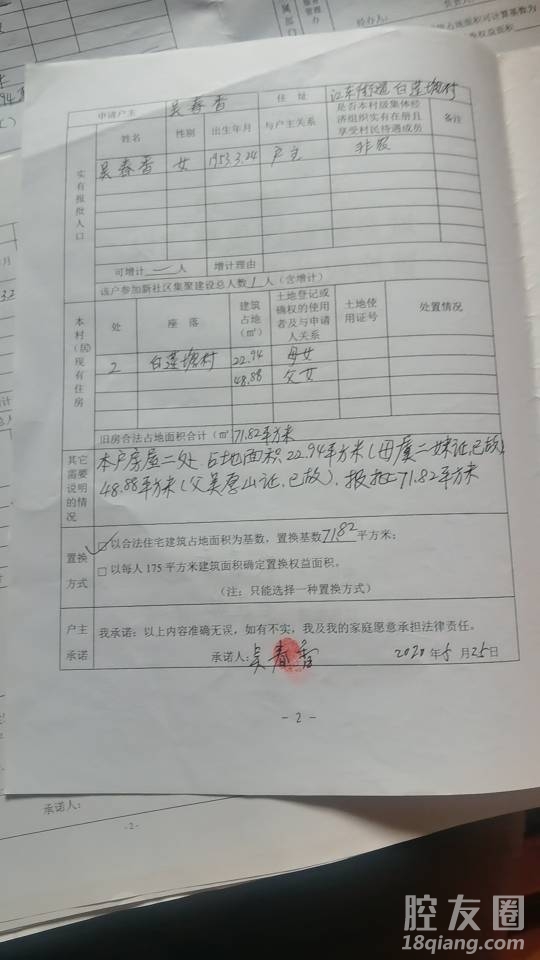 申请户主 吴春香 住址 江东街道白莲塘村
姓名 性别 出生年月 与户主关系 是否本村级集体经济组织实有在册且享受村民待遇成员 备注
实有报批人口
吴春香 女 1953.3.24 户主 非农
可增计 一 人 增计理由
该户参加新社区集聚建设总人数 1 人（含增计）
本村（居）现有住房
处 座落 建筑占地（㎡） 土地登记或确权的使用者及与申请人关系 土地使用证号 处置情况
2 白莲塘村 22.94 母女
48.88 父女
旧房合法占地面积合计（㎡）71.82平方米
其它需要说明的情况
本户房屋二处 占地面积22.94平方米（母虞二妹证,已故）
48.88平方米（父吴唐山证,已故），报批71.82平方米
置换方式
□以合法住宅建筑占地面积为基数，置换基数71.82平方米；
□以每人175平方米建筑面积确定置换权益面积。
（注：只能选择一种置换方式）
户主承诺
我承诺：以上内容准确无误，如有不实，我及我的家庭愿意承担法律责任。
承诺人：吴春香 2020年5月25日
- 2 -
承诺人：
-2-
经办人：
腔友圈
18qiang.com